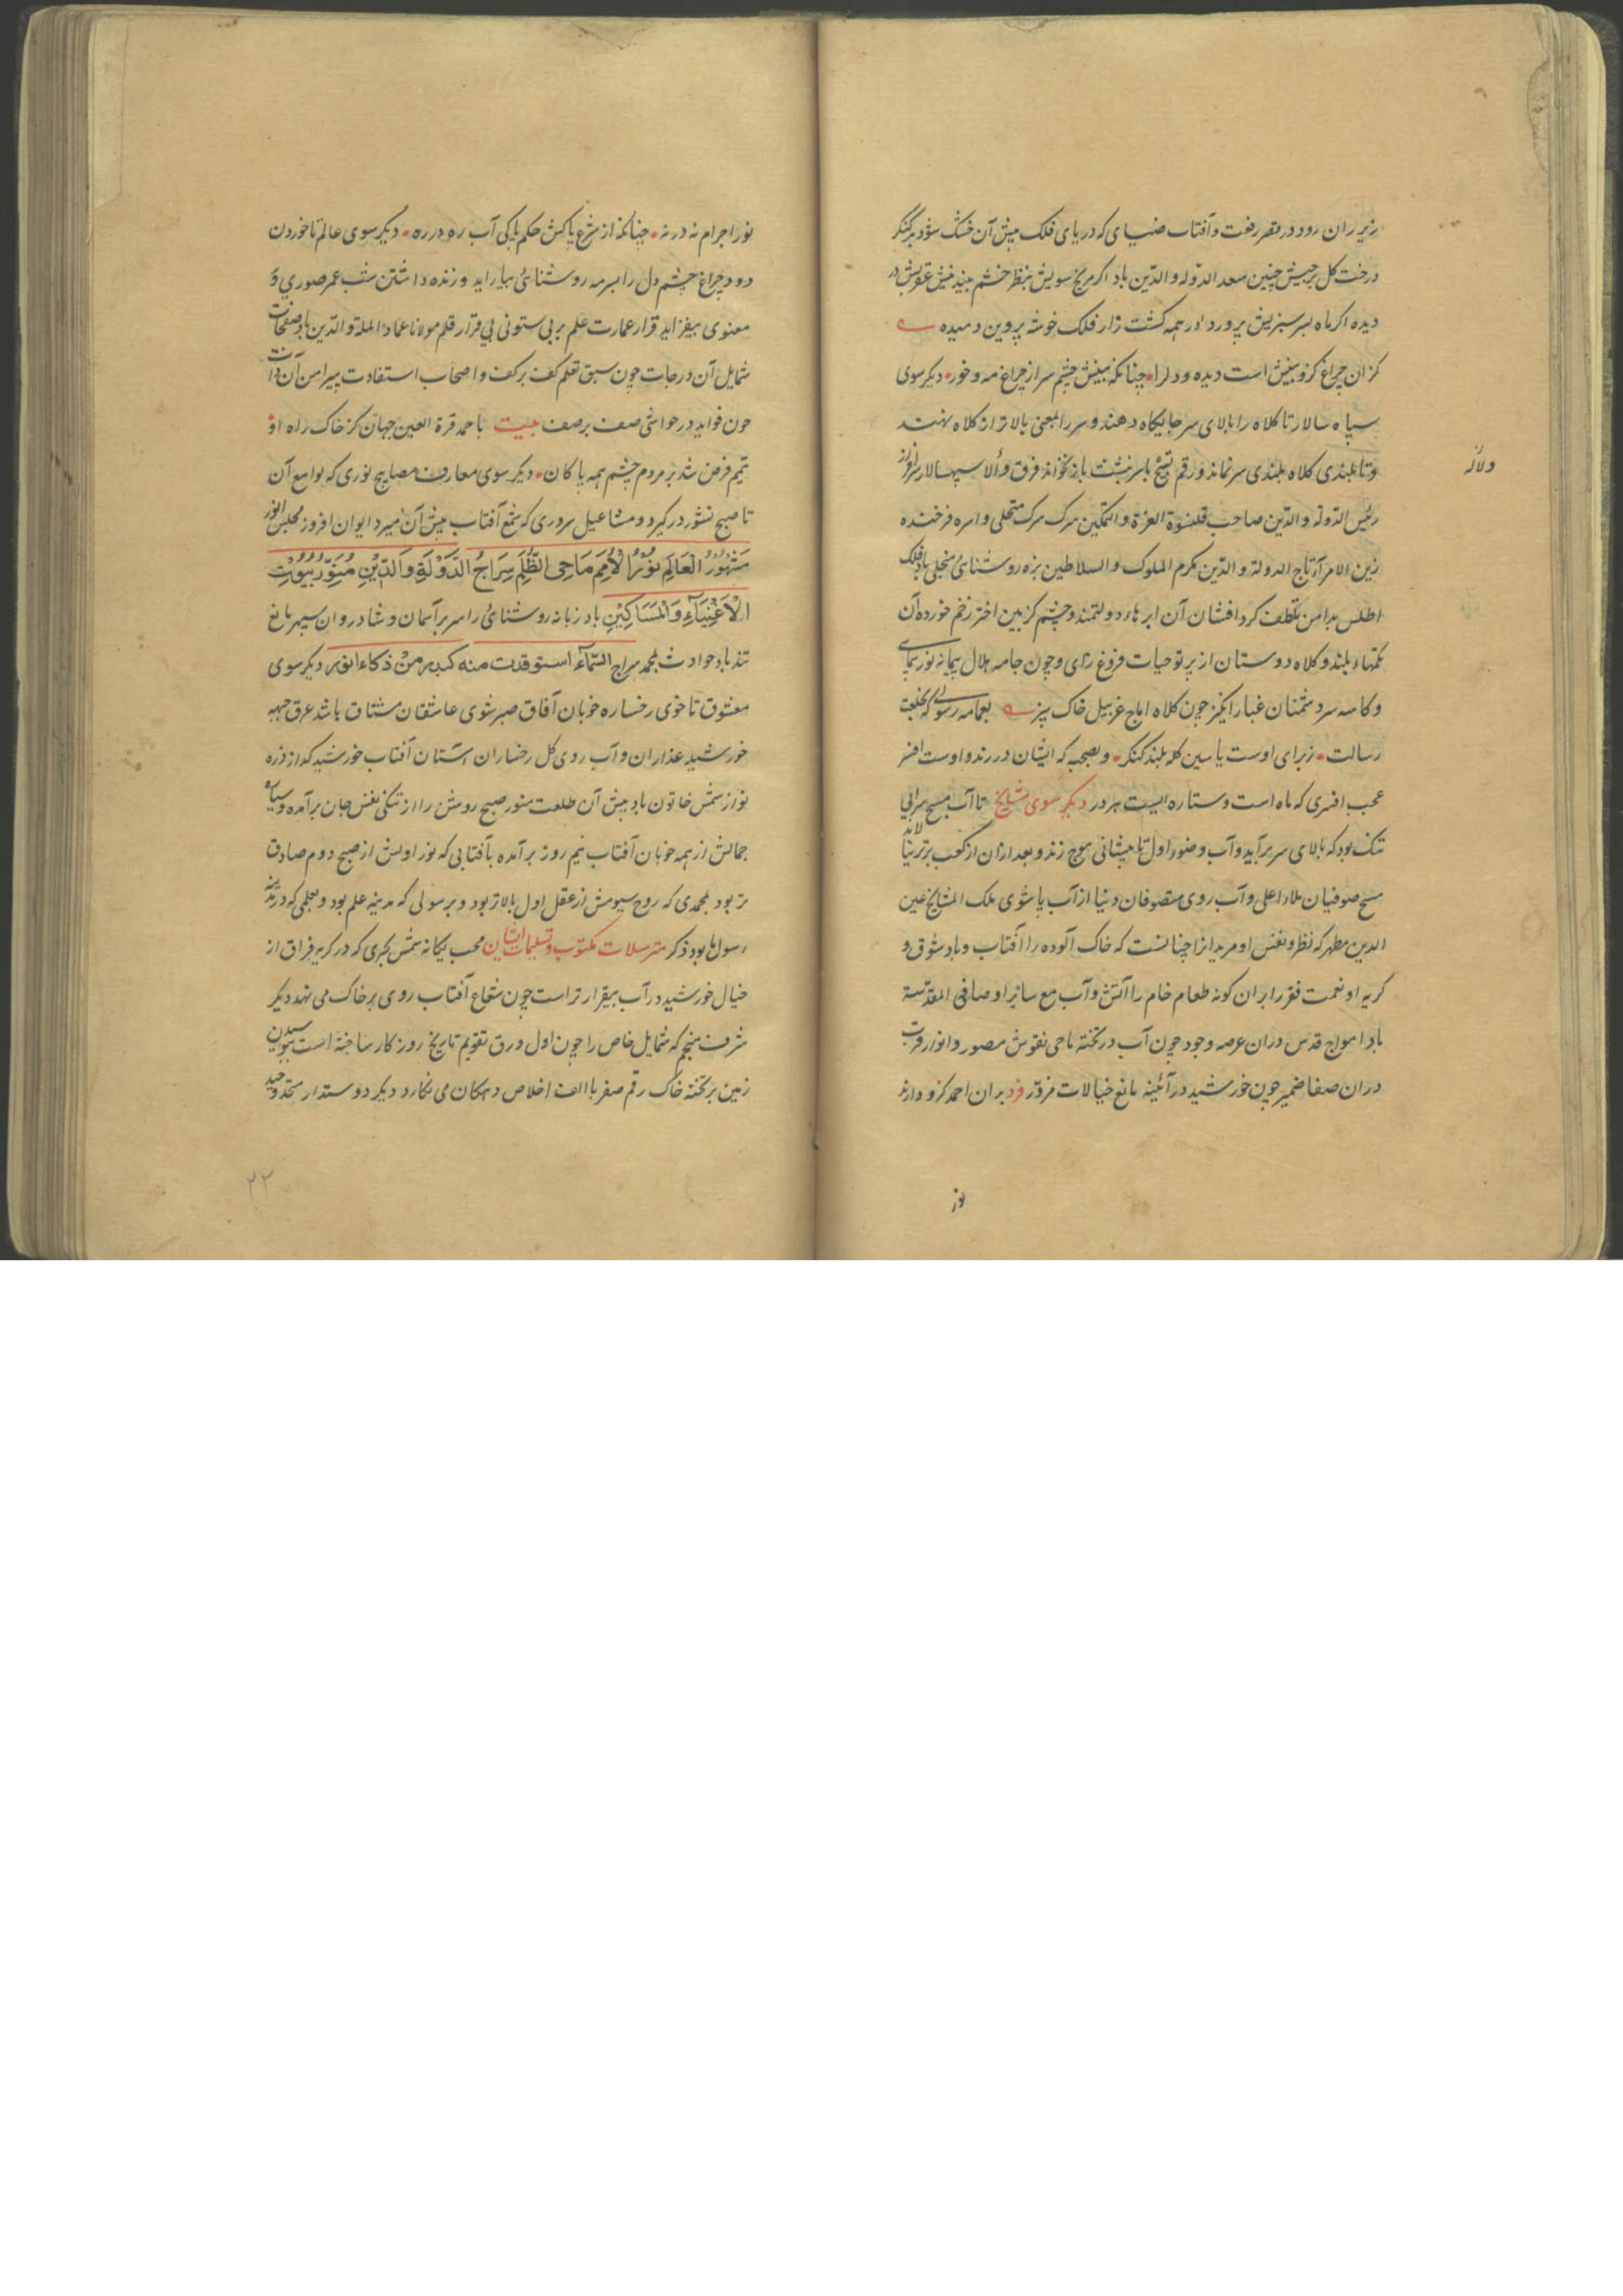 زیر ران رود در قصر رفعت و آفتاب ضیای که دریای فلک پیش آن خشک شود بر کنکر
درخت کل برجیش چنین سعد الدوله و الدین باد اکر مریخ سویش بنظر خشم بیند
دیده اکر ماه بسر سبزیش پرورد او ر همه کشت زار فلک خوشه پروین دمیده
کز ان چراغ کزو بینش است دیده و دل را چنانکه بینش چشم سر از چراغ مه و خور دیکر سوی
سپاه سالار تا کلاه را بالای سر جایکاه دهند و سر را بمعنی بالاتر از کلاه نهند
ولاله
و تا بلندی کلاه بلندی سر نماند و رقم باسر نبشت باز نخواند فرق والا سپهسالار سرافراز
رئیس الدوله والدین صاحب قلنسوة العزة والتمکین بترک متحلی و امره فرخنده
زین الامراء تاج الدولة والدین مکرم الملوک والسلاطین بزه روشنائی متجلی باد فلک
اطلس بدامن تکلف کرد افشان آن ابرهاء دولتمند و چشم کژ بین اختر زخم خورده آن
نکتهاء بلند و کلاه دوستان از پرتو حیات فروغ زای و چون جامه هلال پیمانه نور نمای
و کاسه سر دشمنان غبار انکیز چون کلاه اماج غربیل خاک بیز بعمامه رسولی که خلعت
رسالت ز برای اوست یاسین کله بلند کنکر و بصحبه که ایشان در رند و اوست افسر
عجب افسری که ماه است و ستاره ایست بهر در دیکر سوی مشایخ تا آب مسیح سرابی
تنک بود که بالای سر برآید و آب وضو را اول تا پیشانی موج زند و بعد ازان از کعب برتر نیاید
مسیح صوفیان ملاء اعلی و آب روی متصوفان دنیا از آب پاشوی ملک المشایخ عین
الدین مطهر که نظر و نفس او مریدانرا چنانست که خاک آلوده را آفتاب و باد شوق و
کریه او نعمت فقر را بران کونه طعام خام را آتش و آب مع سایر اوصافی المقدسة
باد امواج قدس دران عرصه وجود چون آب در تخته ماحی نقوش مصور و انوار قربت
دران صفا ضمیر چون خورشید در آئینه مانع خیالات مزور فرد بران احمد کزو دارند
نور
نور اجرام نه درنه چنانکه از شرع پاکش حکم پاکی آب ره در ره دیکر سوی عالم تا خوردن
دود چراغ چشم دل را بسرمه روشنائی بیاراید و زنده داشتن شب عمر صوری و
معنوی بیفزاید قرار عمارت علم بر بی ستونی بی قرار قلم مولانا عماد الملة والدین باد صفحات
شمایل آن درجات چون سبق تعلم کف بر کف و اصحاب استفادت پیرامن آن ذات
چون فواید در حواشی صف بر صف بیت باحمد قرة العین جهان کز خاک راه او
تیمم فرض شد بر مردم چشم همه پاکان دیکر سوی معارف مصابیح نوری که لوامع آن
تا صبح نشور در کیرد و مشاعیل سروری که شمع آفتاب پیش آن میرد ایوان افروز مجلس انور
مشهور العالم نور الامم ماحی الظلم سراج الدولة والدین منور بیوت
الاغنیاء والمساکین باد زبانه روشنائی را سر بر آسمان و شادروان سپهر مانع
تند باد حوادث بمحمد سراج السماء استوقدت منه کبدر من ذکاء انور دیکر سوی
معشوق تا خوی رخساره خوبان آفاق صبر شوی عاشقان مشتاق باشد عرق جبهه
خورشید عذاران و آب روی کل رخساران آستان آفتاب خورشید که از ذره
نور از شمس خاتون باد پیش آن طلعت منور صبح روشن را از تنکی نفس جان برآمده و سپاه
جمالش از همه خوبان آفتاب نیم روز برآمده بآفتابی که نور اولش از صبح دوم صادق
تر بود بمحمدی که روح سیومش از عقل اول بالاتر بود و برسولی که مدینه علم بود و بعلمی که در مدینه
رسول ما بود ذکر مترسلات مکتوب و تسلیمات ایشان محب یکانه شمس کبری که در کریه فراق از
خیال خورشید در آب بیقرارتر است چون شعاع آفتاب روی بر خاک می نهد دیکر
شرف منجم که شمایل خاص را چون اول ورق تقویم تاریخ روزکار ساخته است ببوسیدن
زمین بر تخته خاک رقم صفر با الف اخلاص دمکان می نکارد دیکر دوستدار متحد وحید
۲۲